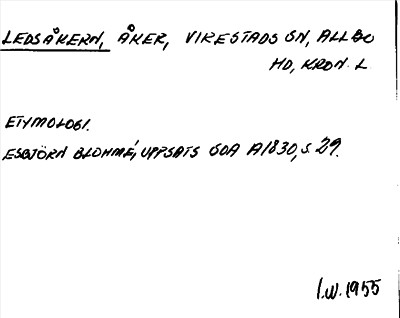 LEDSÅKERN, ÅKER, VIRESTADS SN, ALLBO
HD, KRON. L
ETYMOLOGI.
ESBJÖRN BLOHMÉ, UPPSATS SOA A1830, S 29.
I.W. 1955